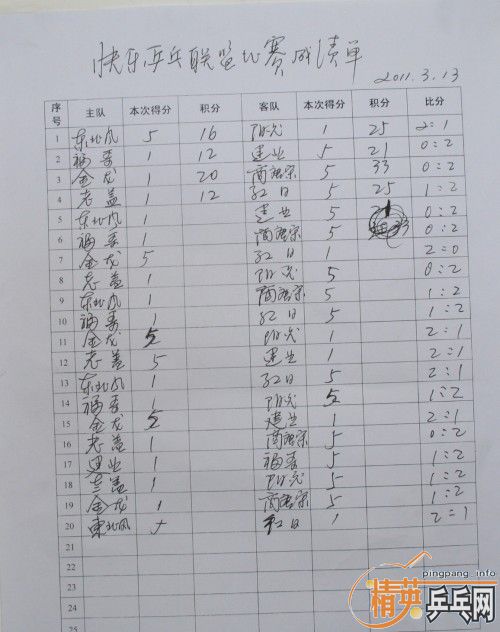 快乐乒乓联盟比赛成绩单
2011.3.13
序号 主队 本次得分 积分 客队 本次得分 积分 比分
1 东北风 5 16 阳光 1 25 2:1
2 福喜 1 12 建业 5 21 0:2
3 金龙 1 20 商唐宋 5 33 0:2
4 老盖 1 12 红日 5 25 1:2
5 东北风 1 建业 5 0:2
6 福喜 1 商唐宋 5 0:2
7 金龙 5 红日 1 2:0
8 老盖 1 阳光 5 0:2
9 东北风 1 商唐宋 5 1:2
10 福喜 1 红日 5 1:2
11 金龙 5 阳光 1 2:1
12 老盖 5 建业 1 2:1
13 东北风 1 红日 5 2:1
14 福喜 1 阳光 5 1:2
15 金龙 5 建业 1 2:1
16 老盖 1 商唐宋 5 0:2
17 建业 1 福喜 5 1:2
18 老盖 1 阳光 5 1:2
19 金龙 1 商唐宋 5 1:2
20 東北风 红日 1 2:1
21
22
23
24
25
pingpang.info
精英乒乓网